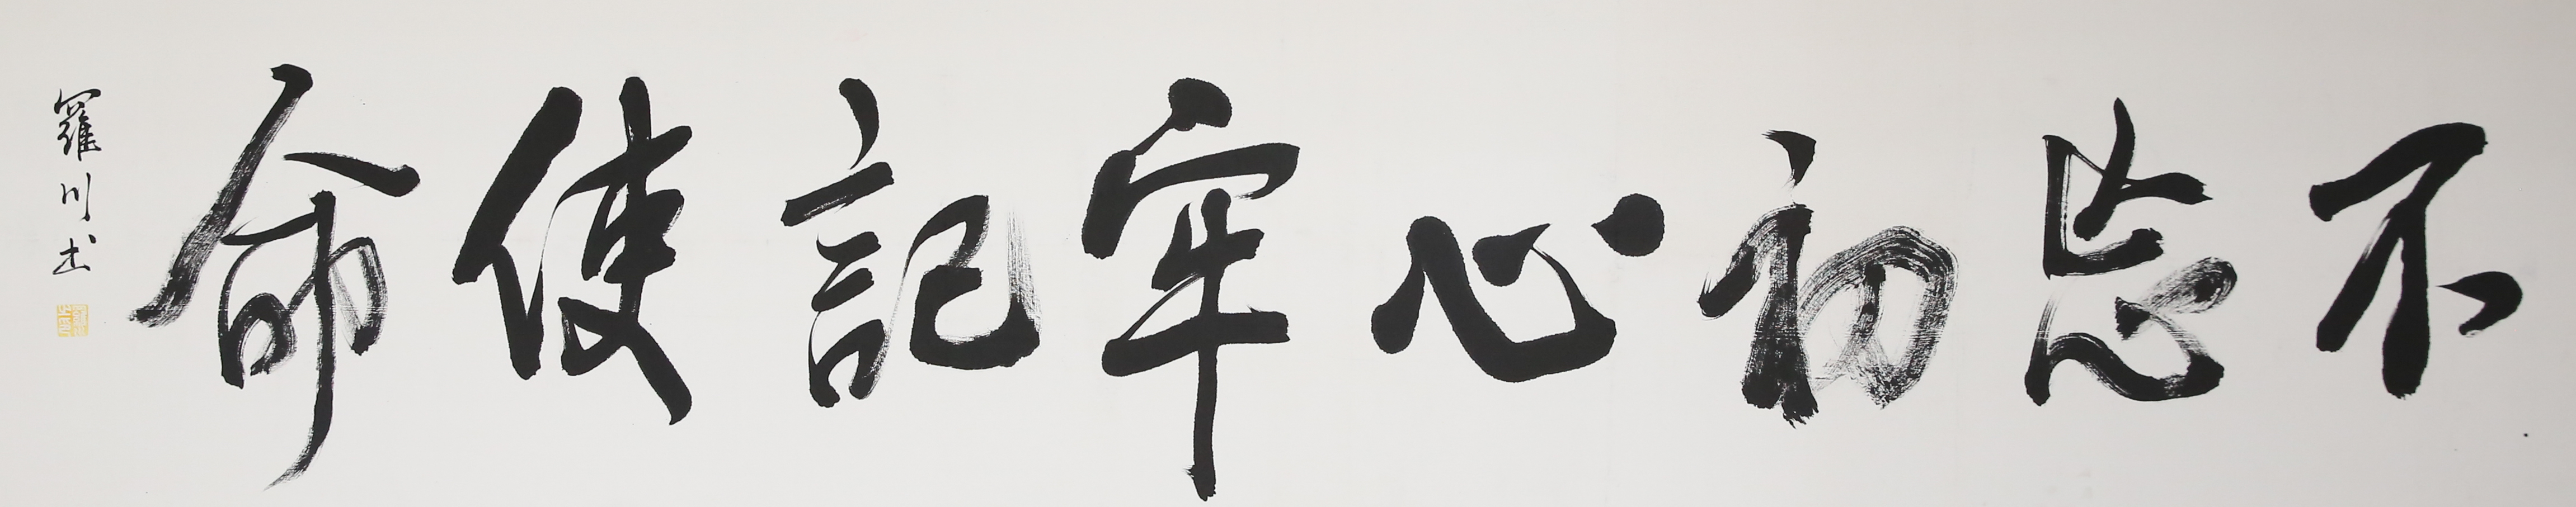 不忘初心牢記使命
羅川书